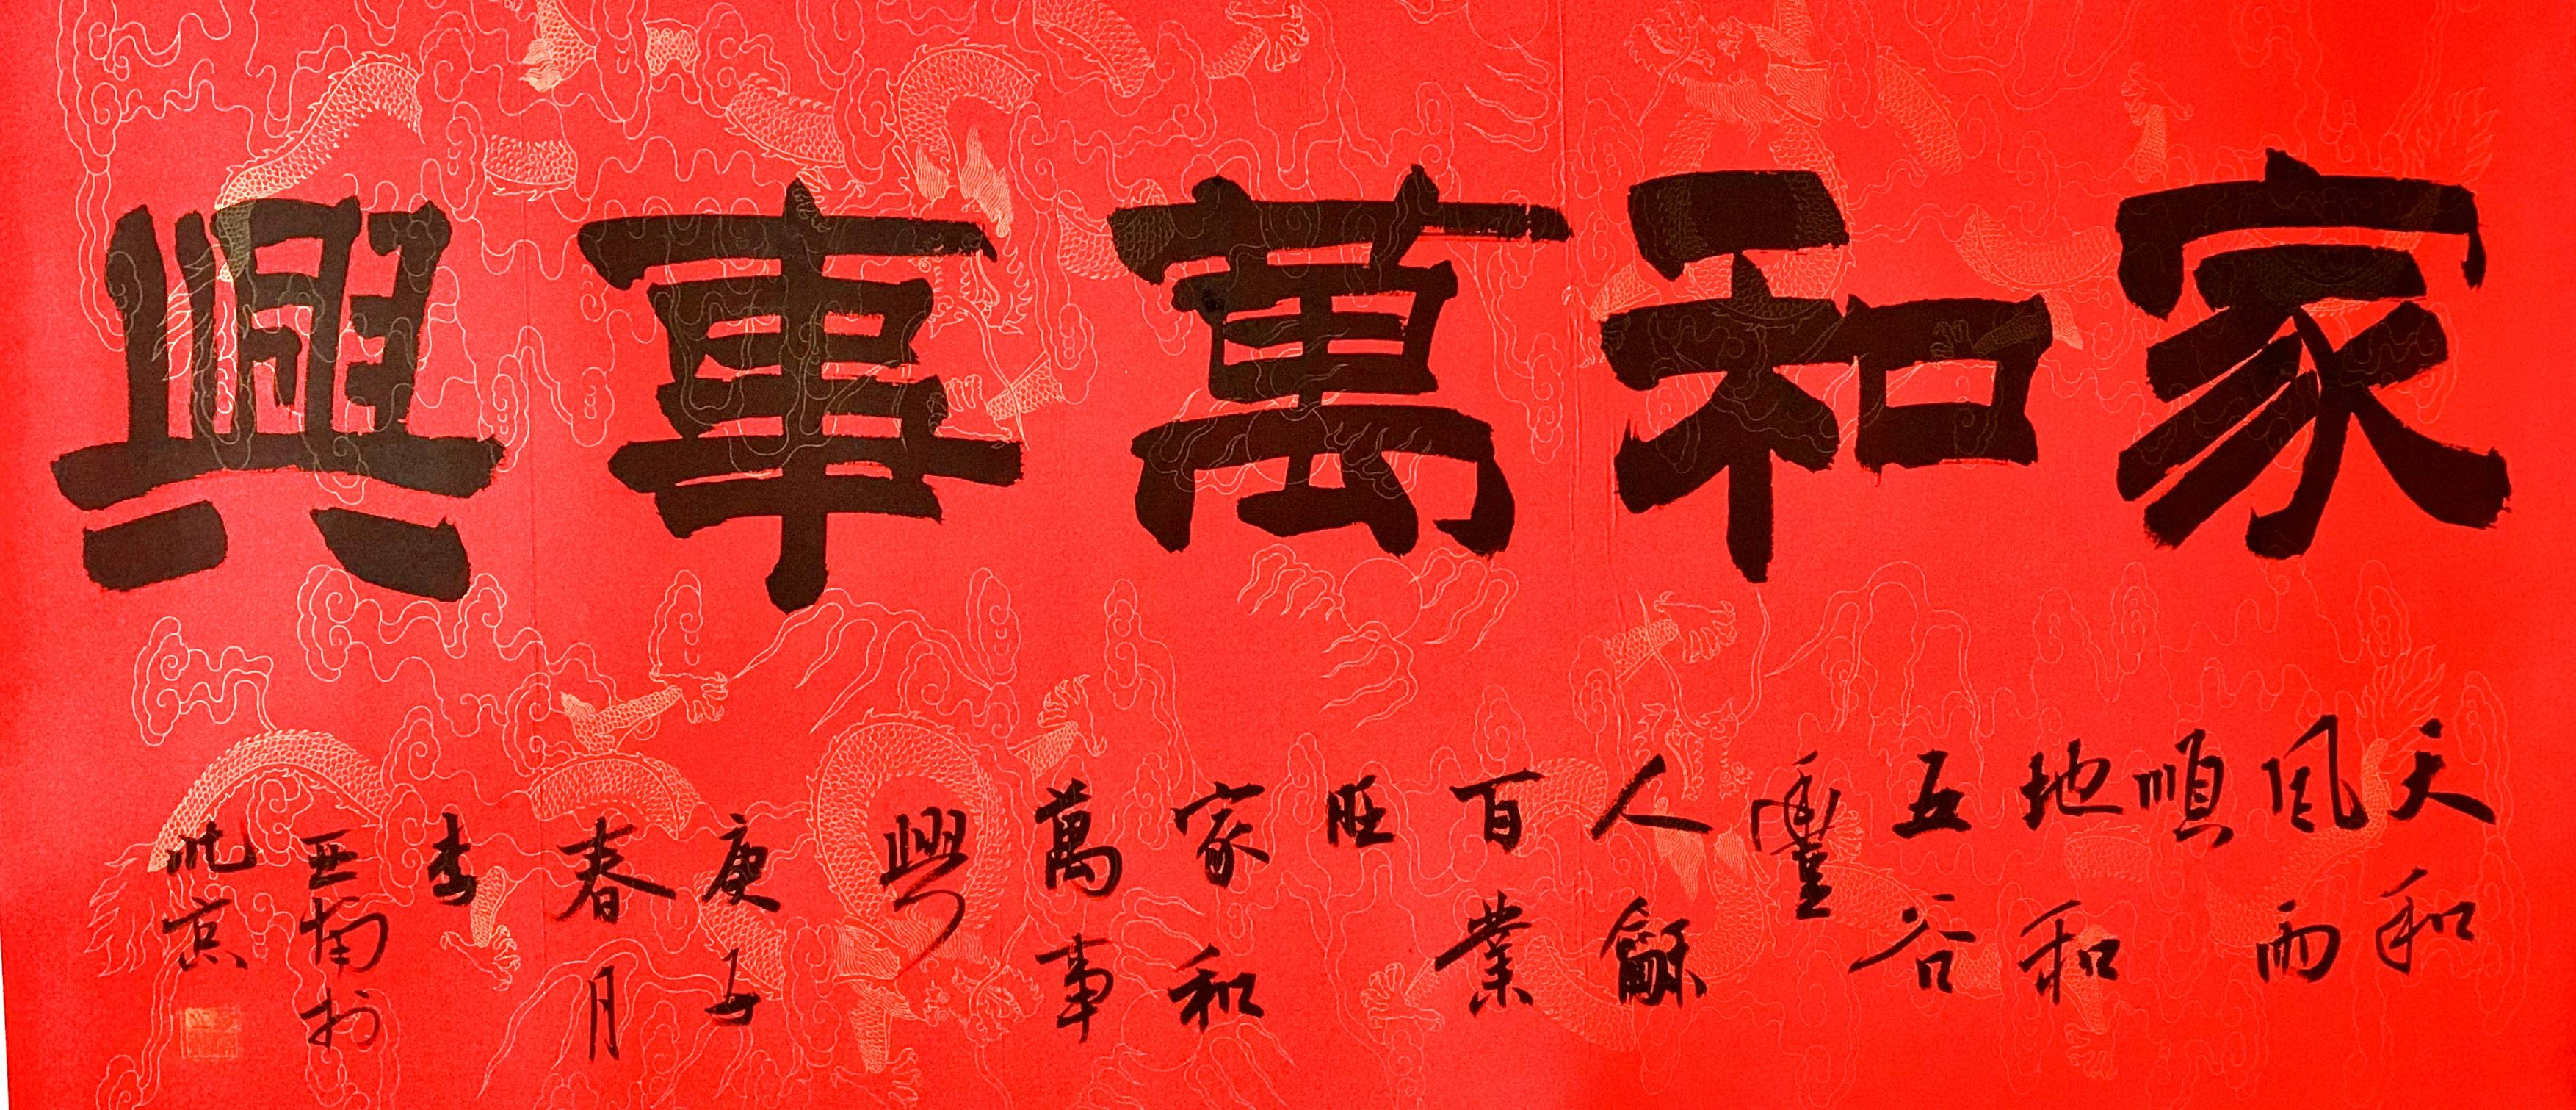 家和萬事興
天和
风雨
順
地和
五谷
豐
人龢
百業
旺
家和
萬事
興
庚子
春月
李
亚南於
北京